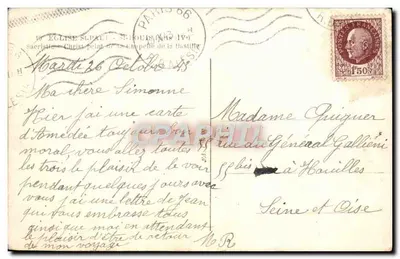 EGLISE St-PAUL
PARIS 66
1F50
Mardi 26 Octobre 43
Ma chère Simonne
Hier j'ai eu une carte
d'Amédée toujours bon
moral, vous allez toutes
les trois le plaisir de le voir
pendant quelques jours avec
vous j'ai une lettre de Jean
qui vous embrasse tous
ainsi que moi en attendant
le plaisir d'être de retour
de mon voyage
M R
Madame Quiguer
55 rue du Général Galliéni
55 bis à Houilles
Seine et Oise